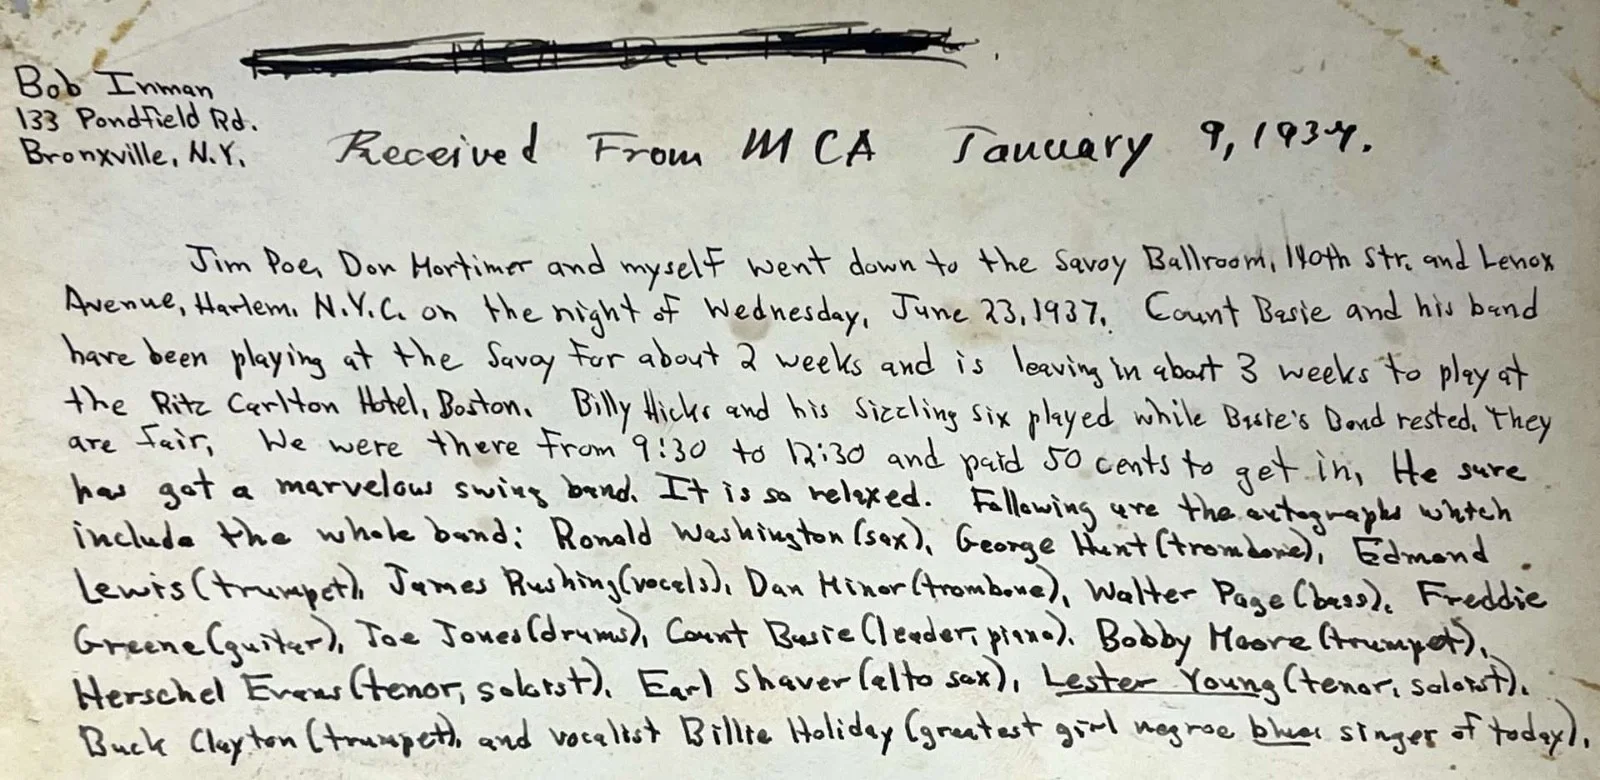 Bob Inman
133 Pondfield Rd.
Bronxville, N.Y.
Received From MCA January 9, 1937.
Jim Poe, Don Mortimer and myself went down to the Savoy Ballroom, 140th Str. and Lenox
Avenue, Harlem, N.Y.C. on the night of Wednesday, June 23, 1937. Count Basie and his band
have been playing at the Savoy for about 2 weeks and is leaving in about 3 weeks to play at
the Ritz Carlton Hotel, Boston. Billy Hicks and his Sizzling Six played while Basie's Band rested. They
are fair. We were there from 9:30 to 12:30 and paid 50 cents to get in. He sure
has got a marvelous swing band. It is so relaxed. Following are the autographs which
include the whole band: Ronald Washington (sax), George Hunt (trombone), Edmond
Lewis (trumpet), James Rushing (vocals), Dan Minor (trombone), Walter Page (bass), Freddie
Greene (guitar), Joe Jones (drums), Count Basie (leader, piano), Bobby Moore (trumpet),
Herschel Evans (tenor, soloist), Earl Shaver (alto sax), Lester Young (tenor, soloist),
Buck Clayton (trumpet), and vocalist Billie Holiday (greatest girl negroe blues singer of today).